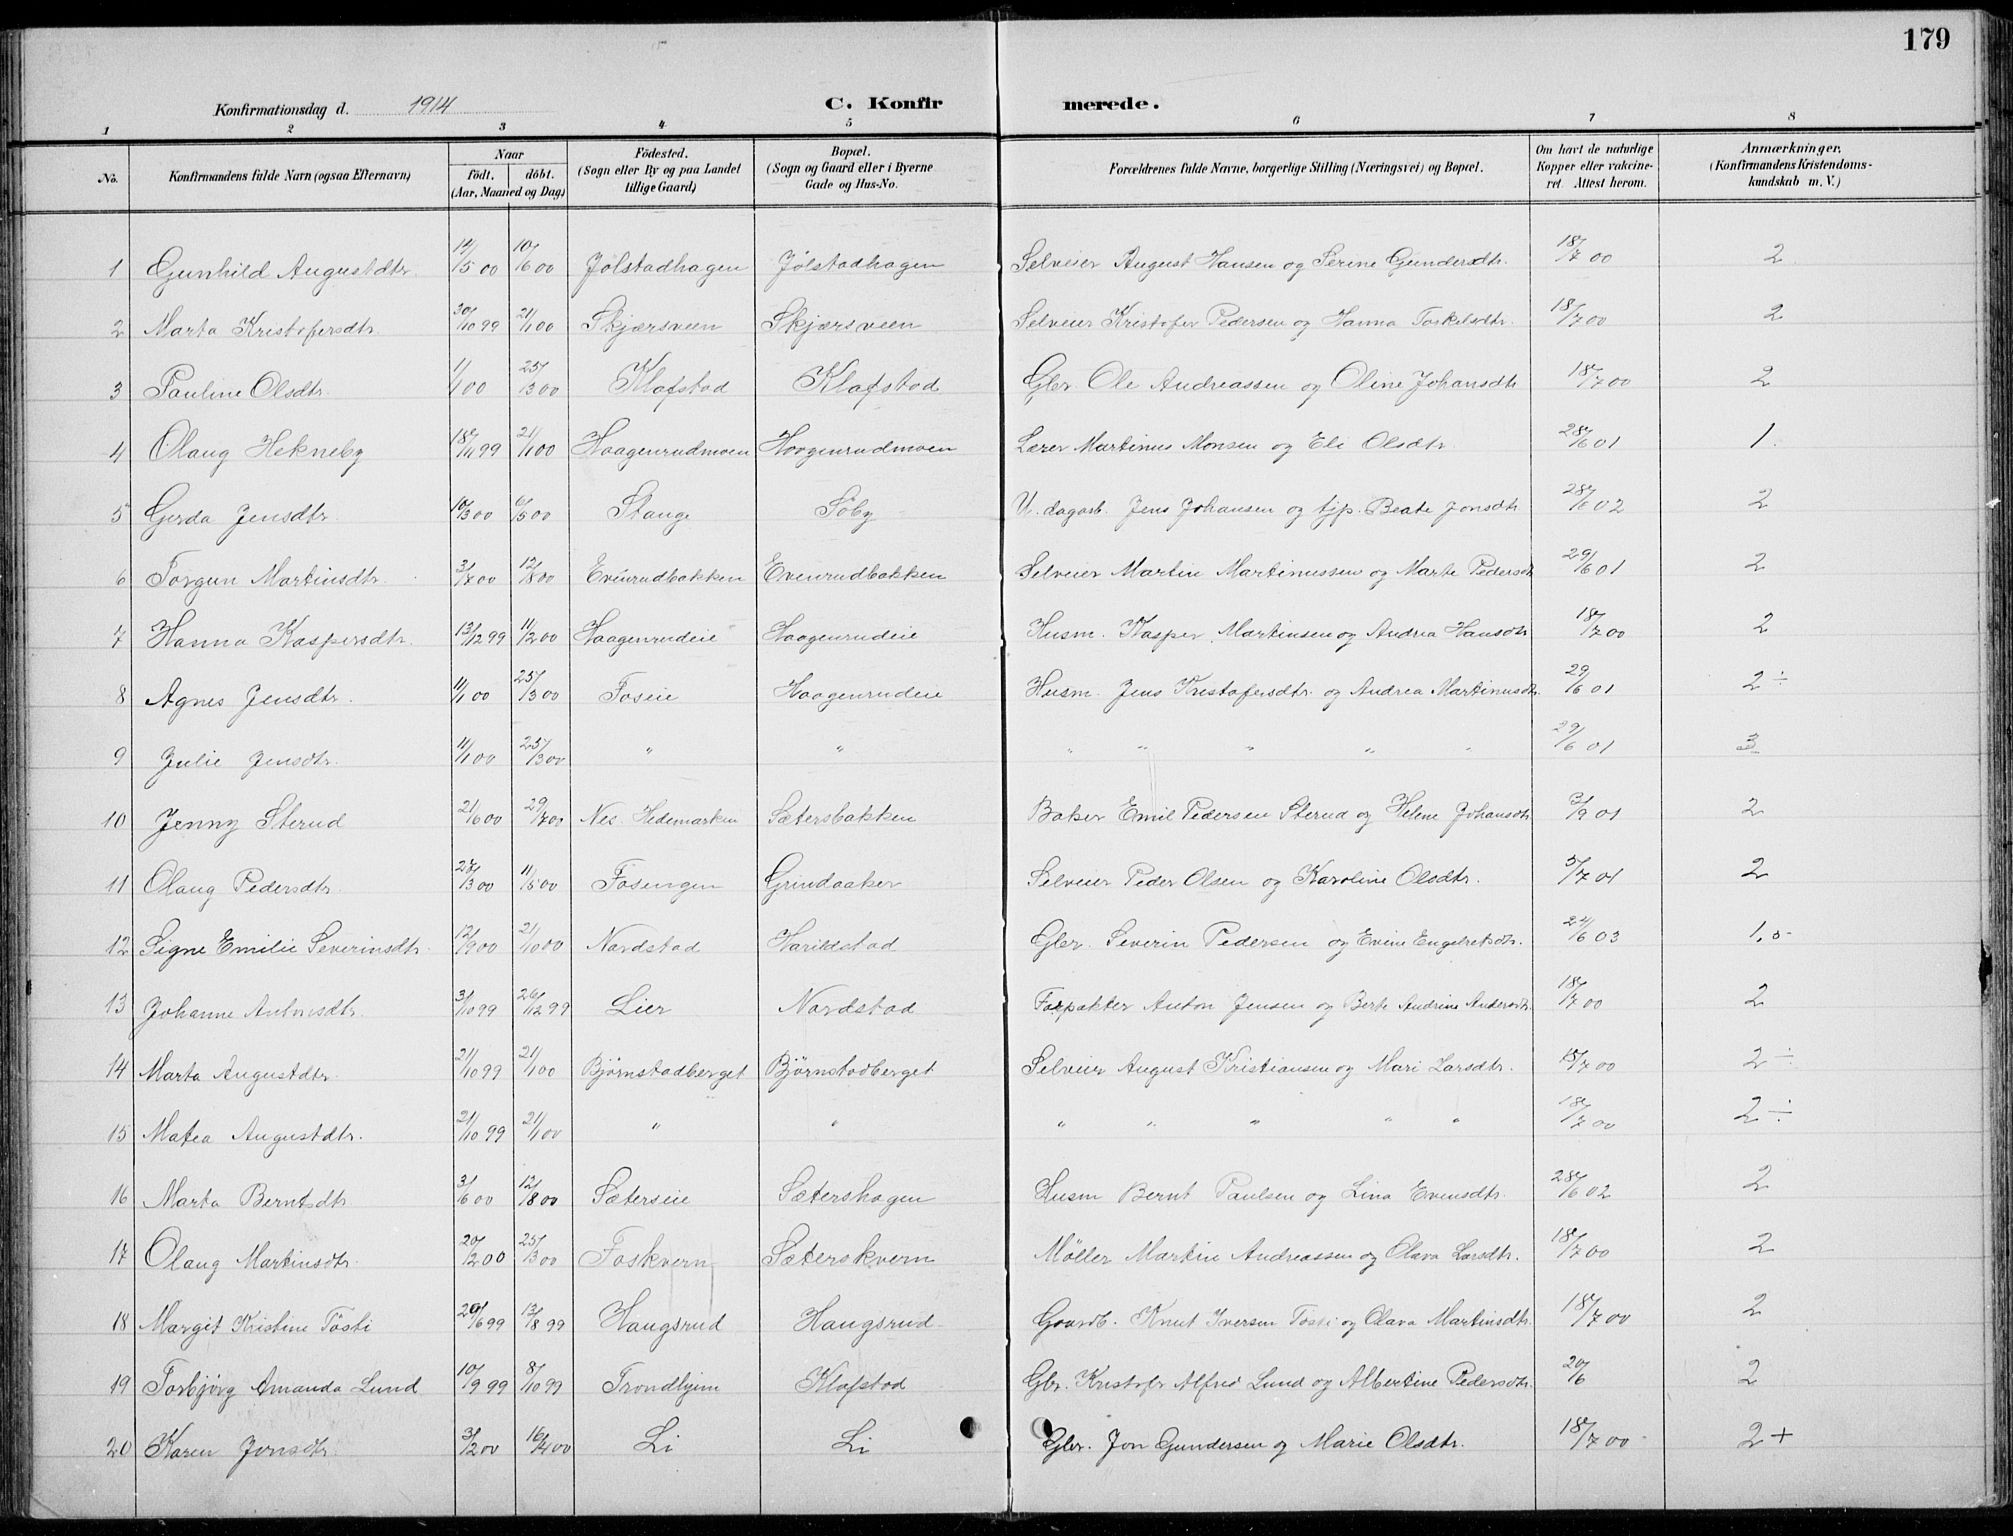 179
Konfirmationsdag d. 1914 C. Konfirmerede.
1 2 3 4 5 6 7 8
No. Konfirmandens fulde Navn (ogsaa Efternavn) Naar født. døbt. (Aar, Maaned og Dag) Födested. (Sogn eller By og paa Landet tillige Gaard) Bopæl. (Sogn og Gaard eller i Byerne Gade og Hus-No. Forældrenes fulde Navne, borgerlige Stilling (Næringsvei) og Bopæl. Om havt de naturlige Kopper eller vakcineret. Attest herom. Anmærkninger. (Konfirmandens Kristendomskundskab m. V.)
1 Gunhild Augustdtr. 12/5 00 10/6 00 Jølstadhagen Jølstadhagen Selveier August Hansen og Serine Gundersdtr. 18/7 00 2
2 Marta Kristofersdtr. 30/10 99 21/1 00 Skjærsveen Skjærsveen Selveier Kristofer Pedersen og Hanna Torkelsdtr. 18/7 00 2
3 Pauline Olsdtr. 1/1 00 25/3 00 Klafstad Klafstad Gbr. Ole Andreassen og Oline Johansdtr 18/7 00 2
4 Olaug Hekneby 18/11 99 21/1 00 Haagenrudmoen Haagenrudmoen Lærer Martinus Monsen og Eli Olsdtr 28/6 01 1.
5 Gerda Jensdtr. 10/3 00 6/5 00 Stange Søby U. dagarb. Jens Johansen og tjp. Beate Jonsdtr 28/6 02 2
6 Torgun Martinsdtr. 3/7 00 12/8 00 Evenrudbakken Evenrudbakken Selveier Martin Martinussen og Marte Pedersdtr 29/6 01 2
7 Hanna Kaspersdtr. 13/12 99 11/2 00 Haagenrudeie Haagenrudeie Husm. Kasper Martinsen og Andrea Hansdtr 18/7 00 2
8 Agnes Jensdtr. 11/1 00 25/3 00 Foseie Haagenrudeie Husm. Jens Kristofersdtr. og Andrea Martinusdtr. 29/6 01 2 ÷
9 Julie Jensdtr. 11/1 00 25/3 00 " " " " " " " 29/6 01 3
10 Jenny Sterud 21/6 00 29/7 00 Nes. Hedemarken Sætersbakken Baker Emil Pedersen Sterud og Helene Johansdtr. 3/9 01 2
11 Olaug Pedersdtr. 27/3 00 11/5 00 Fosengen Grindaaker Selveier Peder Olsen og Karoline Olsdtr. 5/7 01 2
12 Signe Emilie Severinsdtr. 12/9 00 21/10 00 Nordstad Harildstad Gbr. Severin Pedersen og Evine Engelretsdtr. 24/6 03 1,5
13 Johanne Antonsdtr. 3/10 99 26/12 99 Lier Nordstad Forpakter Anton Jensen og Berte Andrine Andersdtr. 18/7 00 2
14 Marta Augustdtr. 21/10 99 21/1 00 Bjørnstadberget Bjørnstadberget Selveier August Kristiansen og Mari Larsdtr. 18/7 00 2 ÷
15 Matea Augustdtr. 21/10 99 21/1 00 " " " " " " " 18/7 00 2 ÷
16 Marta Berntsdtr 3/6 00 12/8 00 Sæterseie Sætershagen Husm Bernt Paulsen og Lina Evensdtr. 28/6 02 2
17 Olaug Martinsdtr. 20/2 00 25/3 00 Foskvern Sæterskvern Møller Martin Andreassen og Olava Larsdtr. 18/7 00 2
18 Margit Kristine Tøsti 29/6 99 13/8 99 Haugsrud Haugsrud Gaardb. Knut Iversen Tøsti og Olava Martinsdtr. 18/7 00 2
19 Torbjørg Amanda Lund 10/9 99 8/10 99 Trondhjem Klafstad Gbr. Kristofr Alfred Lund og Albertine Pedersdtr. 20/6 2
20 Karen Jonsdtr. 3/2 00 16/4 00 Li Li Gbr. Jon Gundersen og Marie Olsdtr. 18/7 00 2 +